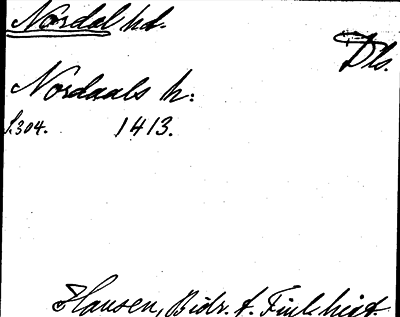 Nordal hd.
Dls.
Nordaals h:
S. 304. 1413.
Hausen, Bidr. t. Finl. hist.